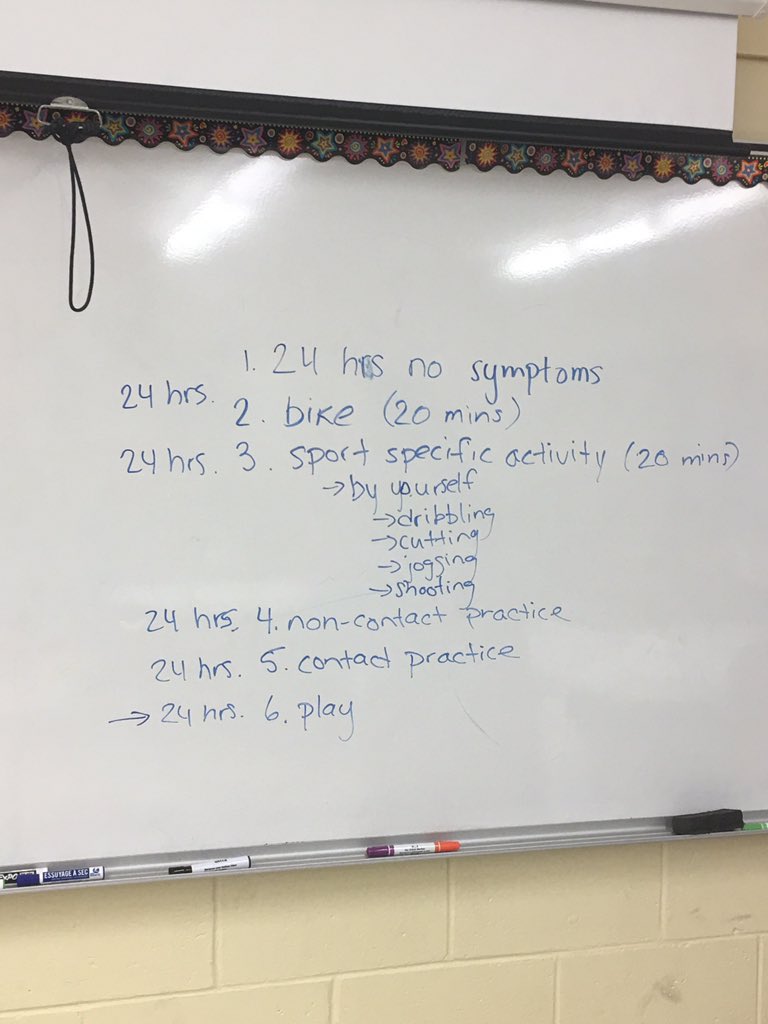 1. 24 hrs no symptoms
24 hrs. 2. bike (20 mins)
24 hrs. 3. sport specific activity (20 mins)
→ by yourself
→ dribbling
→ cutting
→ jogging
→ shooting
24 hrs. 4. non-contact practice
24 hrs. 5. contact practice
→ 24 hrs. 6. play
EXPO ESSUYAGE À SEC